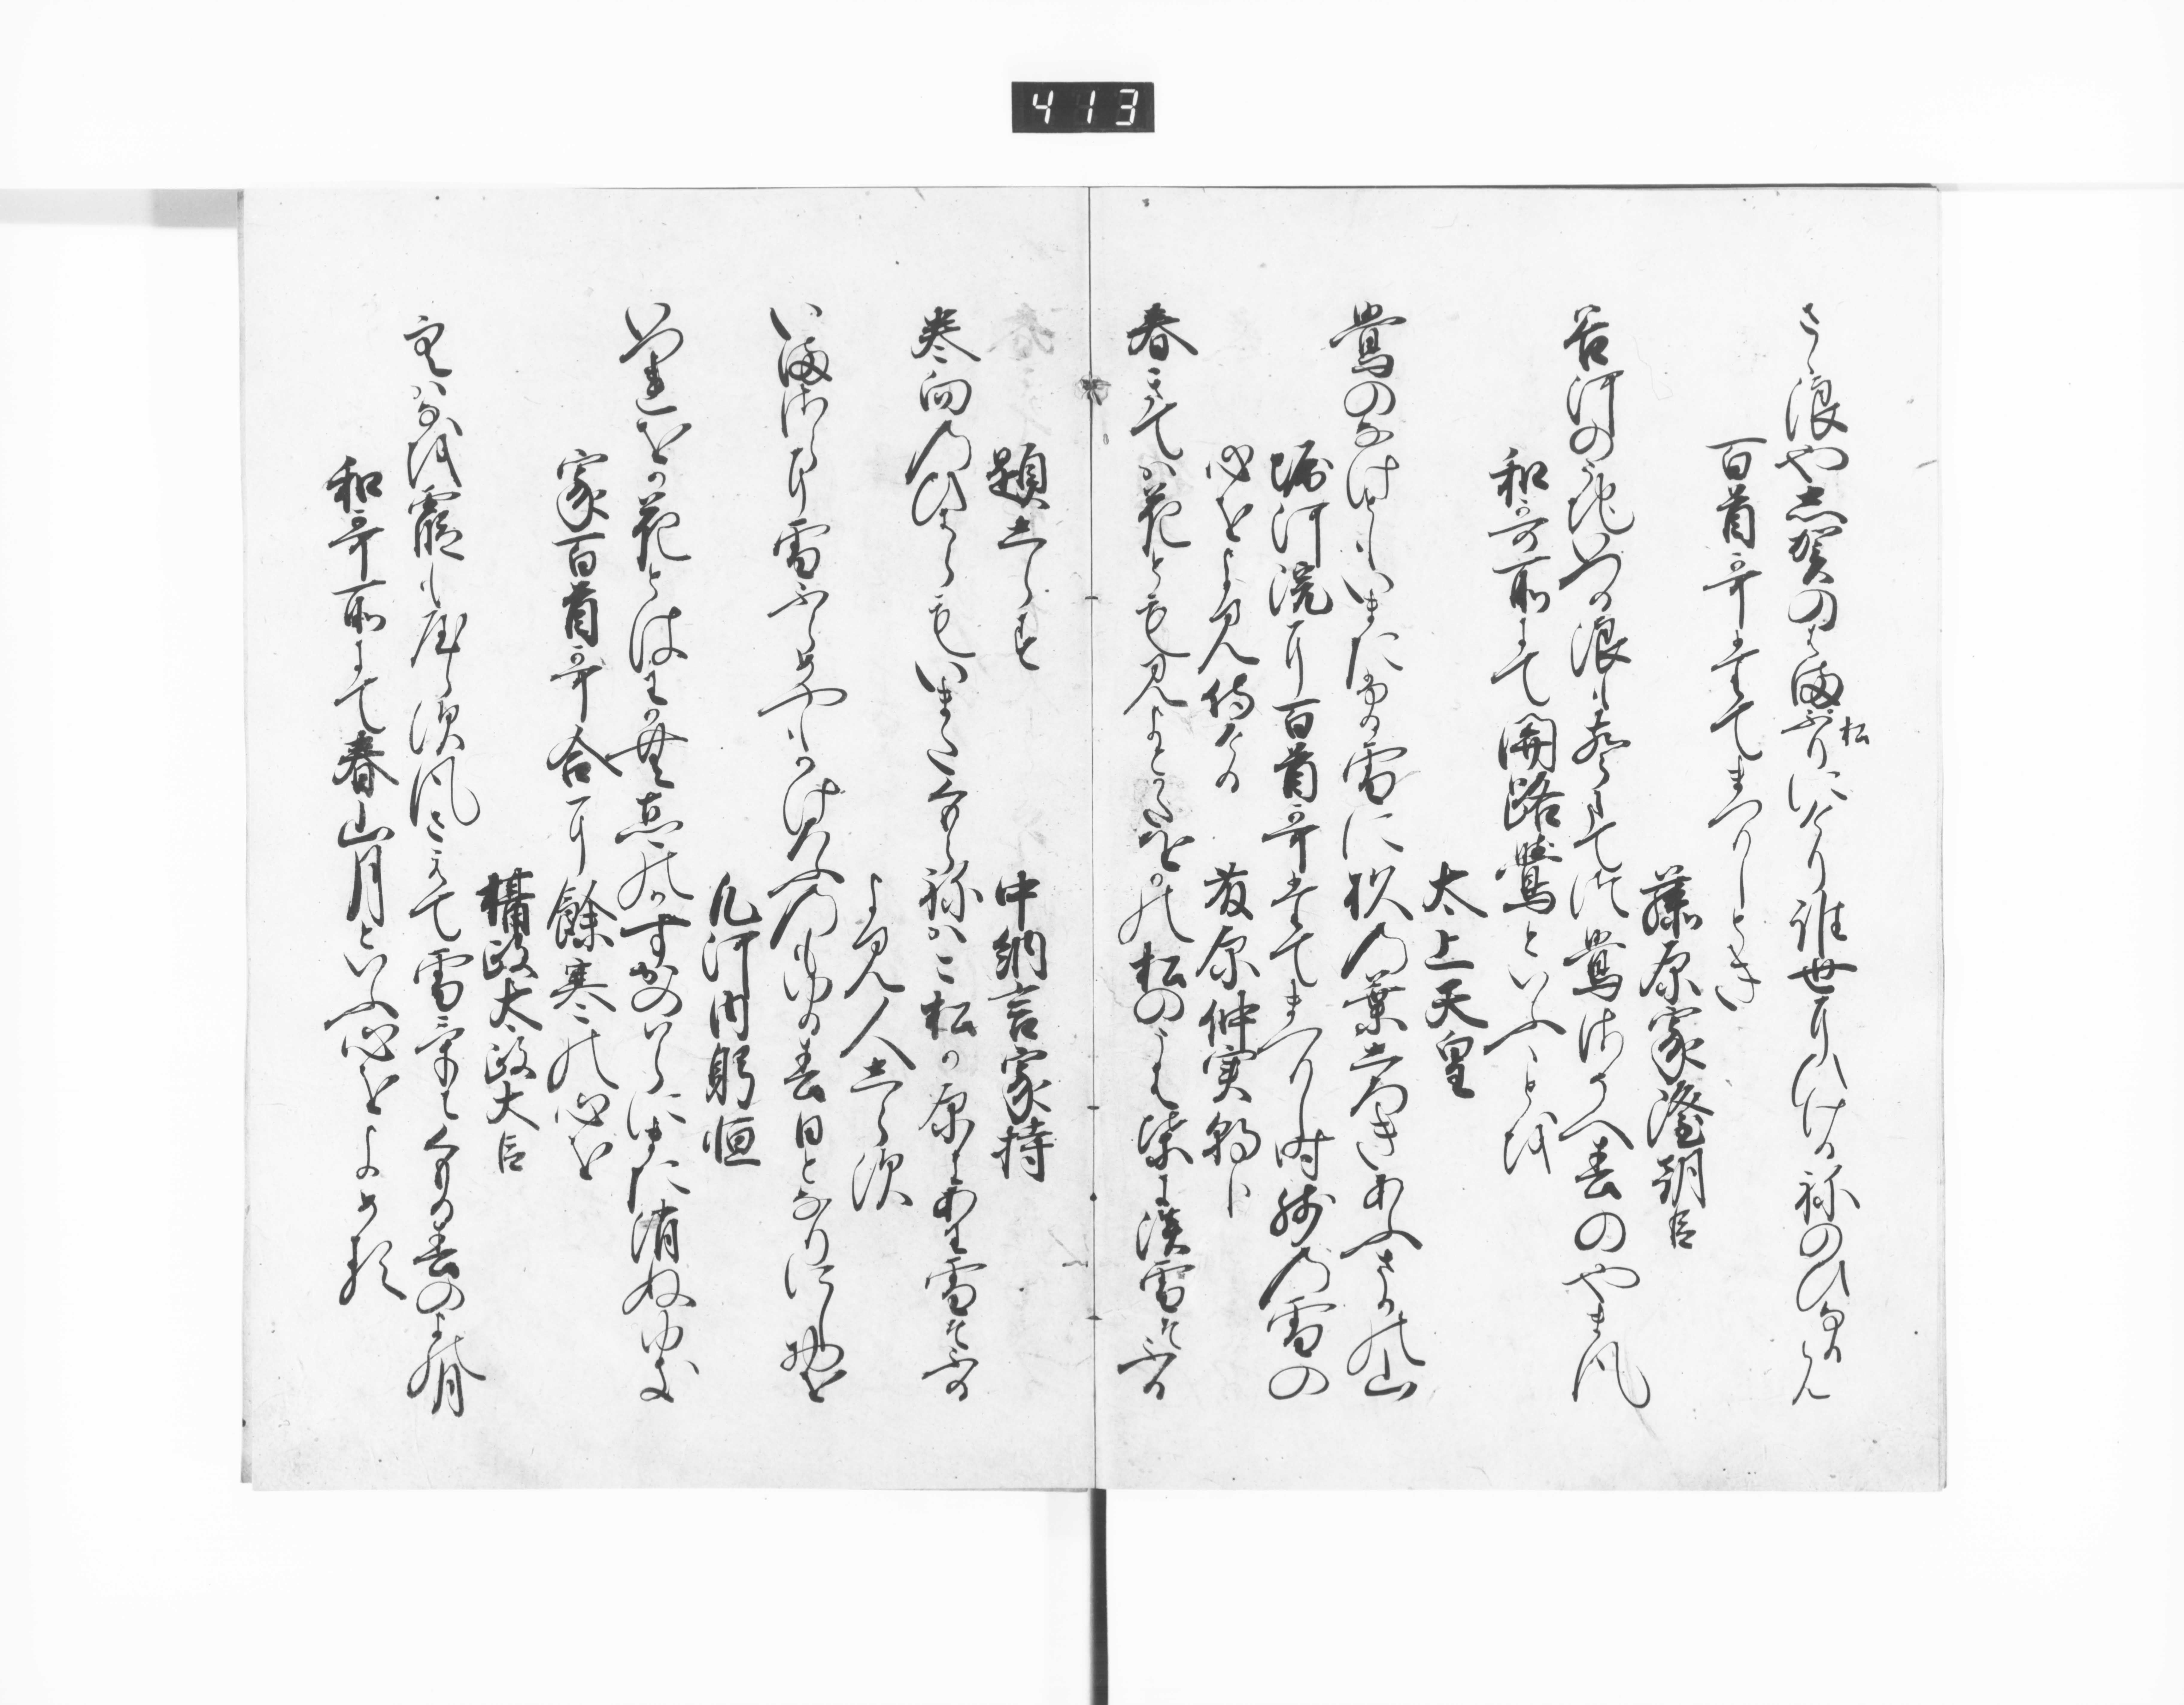 413
さゝ浪や志賀のはまゝつふりにけり誰世にひける祢のひなるらん
松
百首哥たてまつりしとき
藤原家隆朝臣
谷河のうち出る浪も声たてつ鶯さそへ春のやま風
和哥所にて関路鶯といふことを
太上天皇
鶯のなけともいまたふる雪に杦の葉志ろきあふさかの山
堀河院に百首哥たてまつりし時残の雪の
心をよみ侍ける
藤原仲実朝臣
春きては花とも見よとかたをかの松のうは葉にあは雪そふる
題しらす
中納言家持
巻向のひはらもいまたくもらねはこ松か原にあは雪そふる
よみ人しらす
いまさらに雪ふらめやもかけろふのもゆる春日となりにし物を
凡河内躬恒
いつれをか花とはわかむ古郷のかすかのはらにまた消ぬ雪
家百首哥合に餘寒の心を
摂政太政大臣
空はなを霞もやらす風さえて雪けにくもる春のよの月
和哥所にて春山月といふ心をよめる